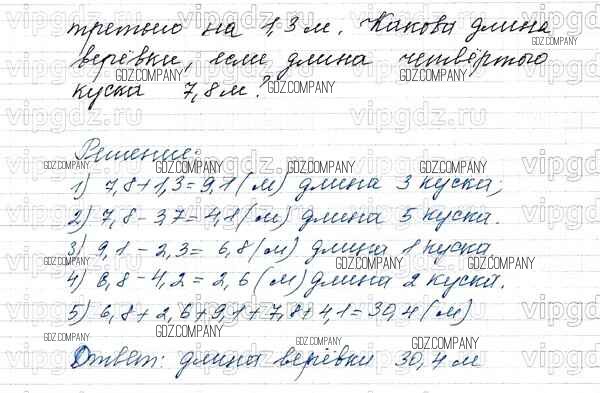 третьего на 1,3 м. Какова длина
верёвки, если длина четвёртого
куска 7,8 м?
Решение:
1) 7,8 + 1,3 = 9,1 (м) длина 3 куска;
2) 7,8 - 3,7 = 4,1 (м) длина 5 куска.
3) 9,1 - 2,3 = 6,8 (м) длина 1 куска
4) 6,8 - 4,2 = 2,6 (м) длина 2 куска.
5) 6,8 + 2,6 + 9,1 + 7,8 + 4,1 = 30,4 (м)
Ответ: длина верёвки 30,4 м